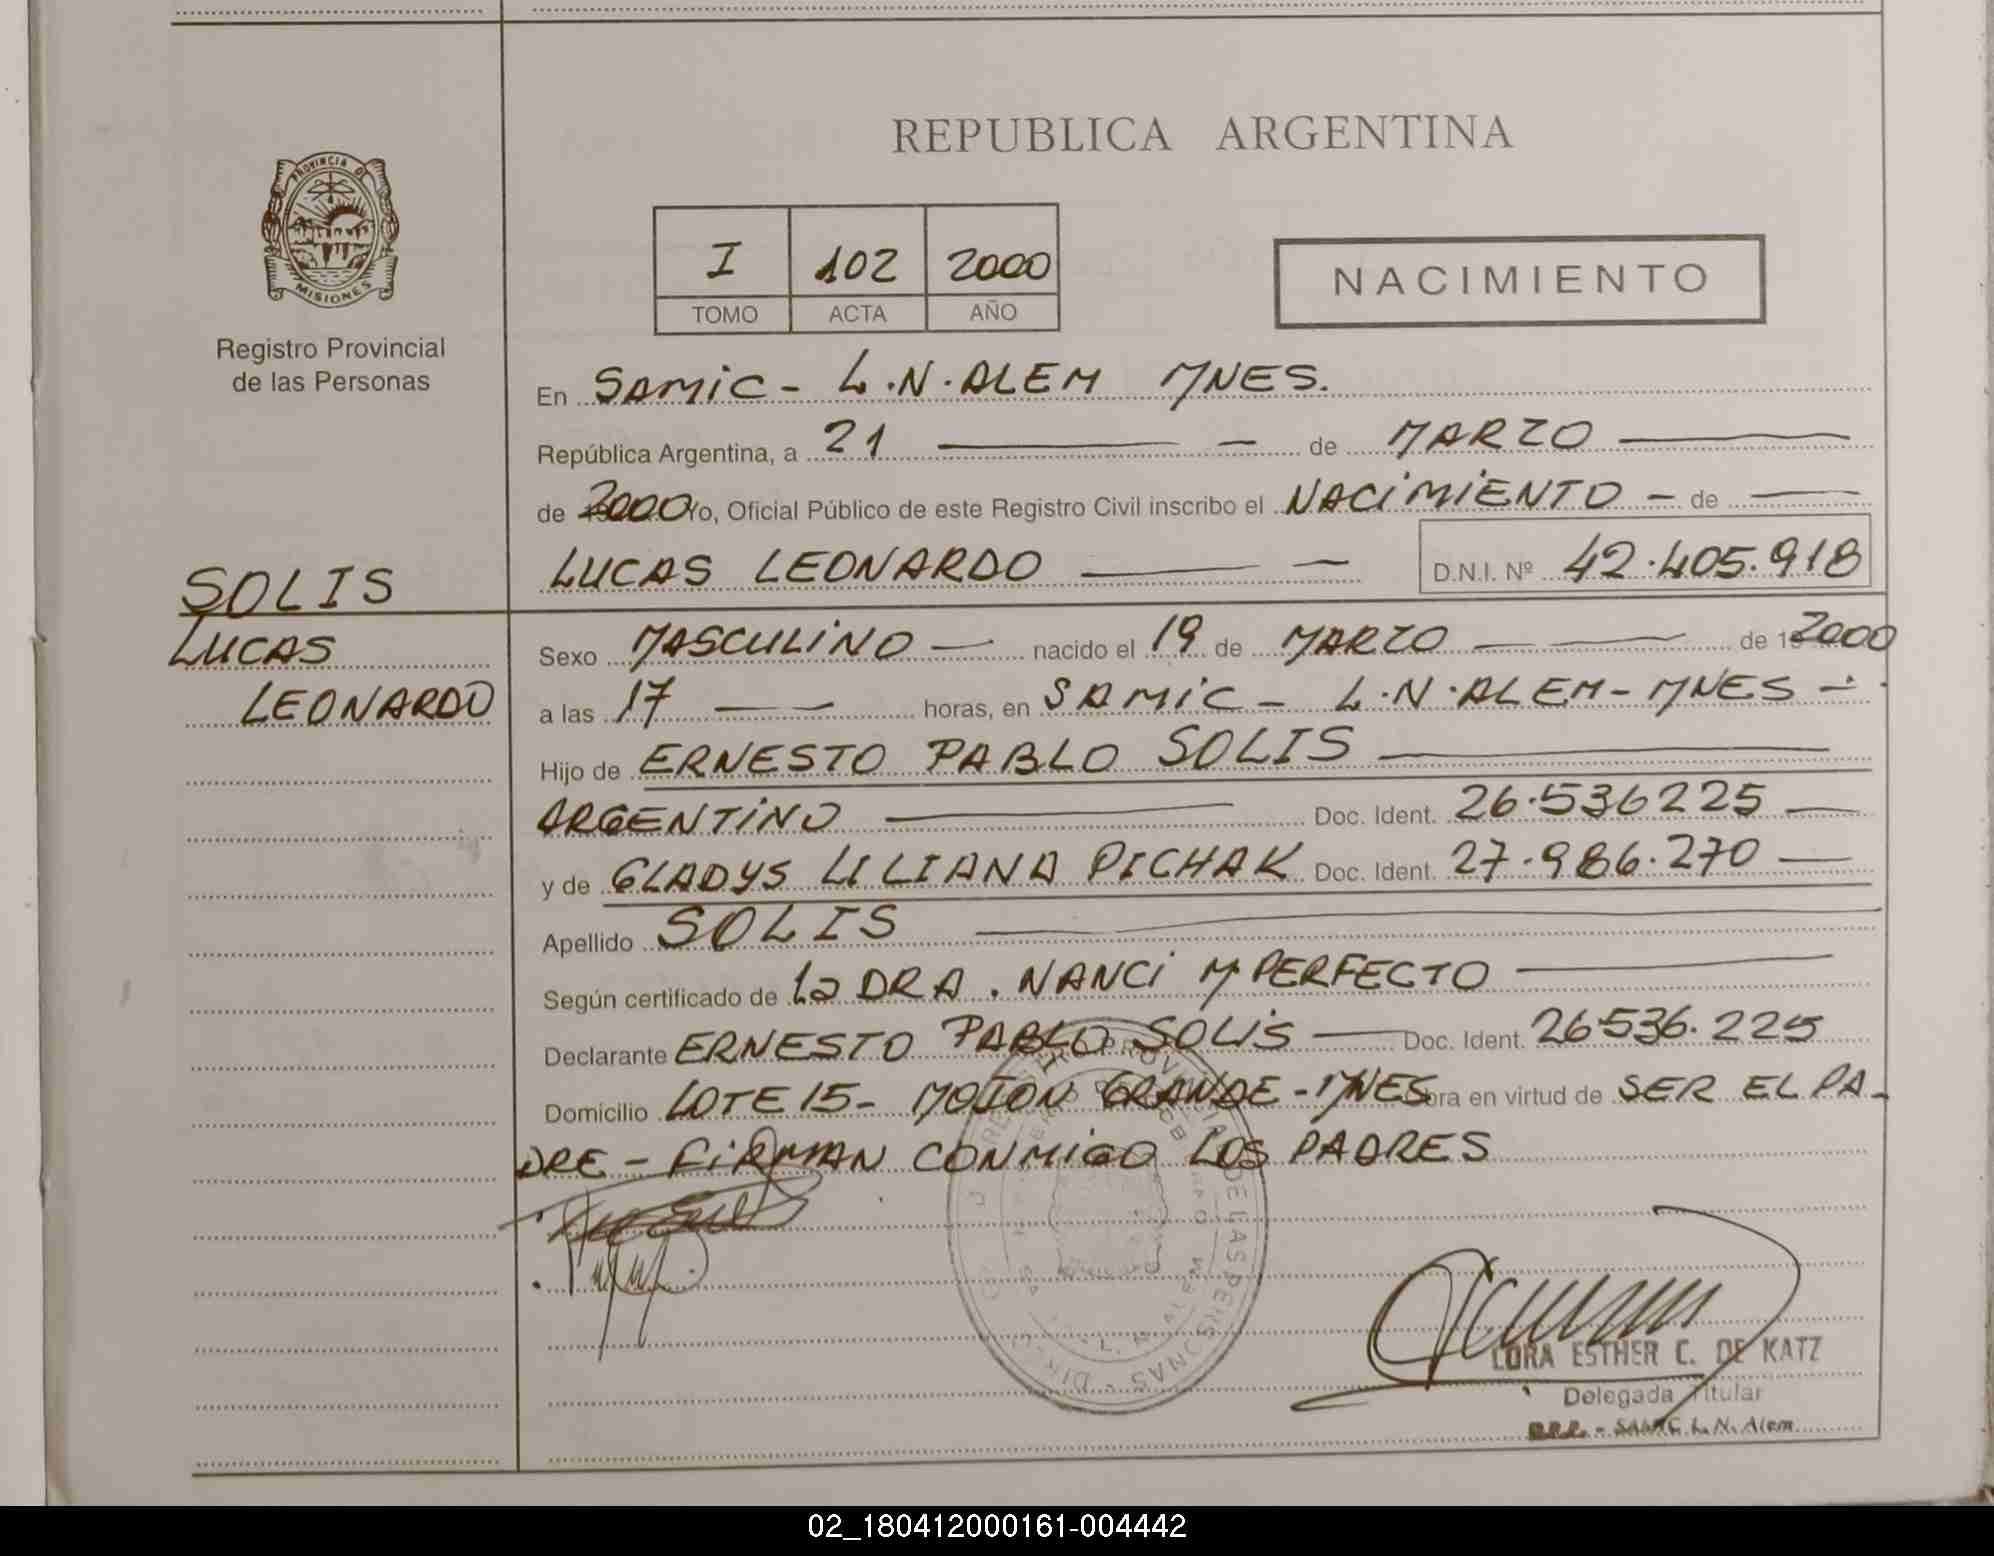 REPUBLICA ARGENTINA
PROVINCIA DE
MISIONES
Registro Provincial
de las Personas
I 102 2000
TOMO ACTA AÑO
NACIMIENTO
En SAMIC - L.N.ALEM MNES.
República Argentina, a 21 — - de MARZO —
de 2000 Yo, Oficial Público de este Registro Civil inscribo el NACIMIENTO - de —
LUCAS LEONARDO — - D.N.I. Nº 42.405.918
SOLIS
LUCAS
LEONARDO
Sexo MASCULINO — nacido el 19 de MARZO — de 2000
a las 17 — horas, en SAMIC - L.N.ALEM - MNES -
Hijo de ERNESTO PABLO SOLIS —
ARGENTINO — Doc. Ident. 26.536225 —
y de GLADYS LILIANA PICHAK Doc. Ident. 27.986.270 —
Apellido SOLIS —
Según certificado de La DRA. NANCI M PERFECTO —
Declarante ERNESTO PABLO SOLIS — Doc. Ident. 26536.225
Domicilio LOTE 15 - MOJON GRANDE - MNES ora en virtud de SER EL PA-
DRE - FIRMAN CONMIGO LOS PADRES
DE LAS PERSONAS
L. N. ALEM
LORA ESTHER C. DE KATZ
Delegada Titular
SAMIC L.N. Alem
02_180412000161-004442